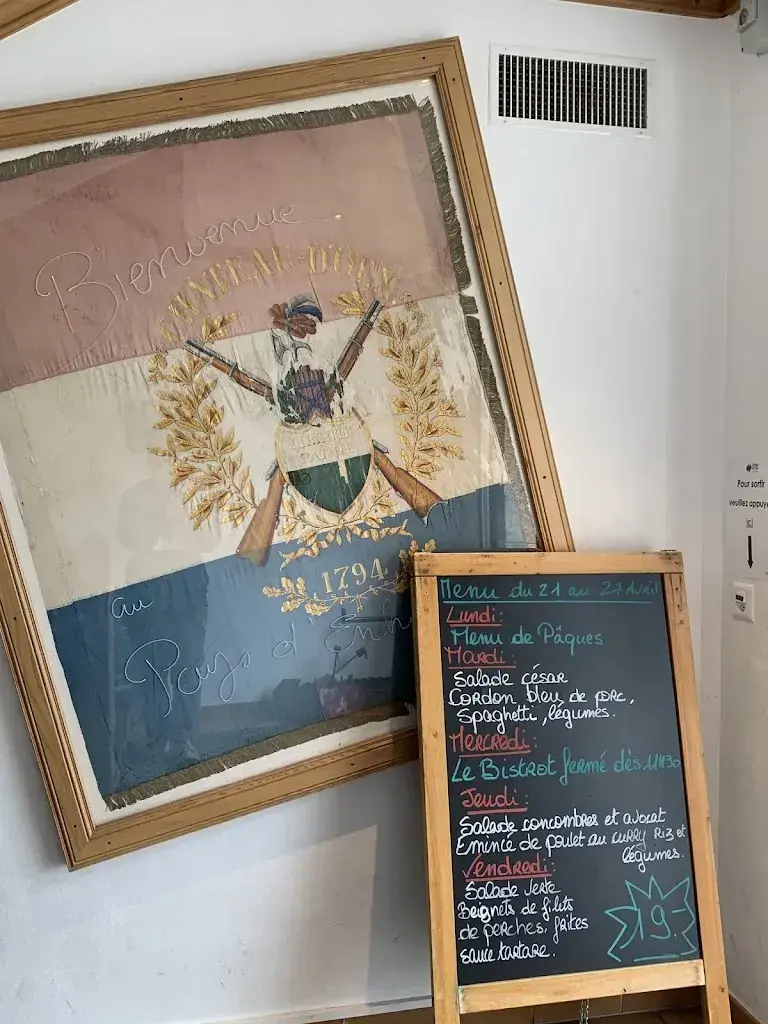 Bienvenue
CHATEAU-D'OEX
LIBERTÉ
PATRIE
1794
au
Pays d'Enh
Menu du 21 au 27 Avril
Lundi:
Menu de Pâques
Mardi:
Salade césar
Cordon bleu de porc,
Spaghetti, légumes.
Mercredi:
Le Bistrot fermé dès 11H30
Jeudi:
Salade concombres et avocat
Emincé de poulet au curry Riz et
légumes.
Vendredi:
Salade Verte
Beignets de filets
de perches, frites
sauce tartare.
19.-
Pour sortir
veuillez appuye
ici